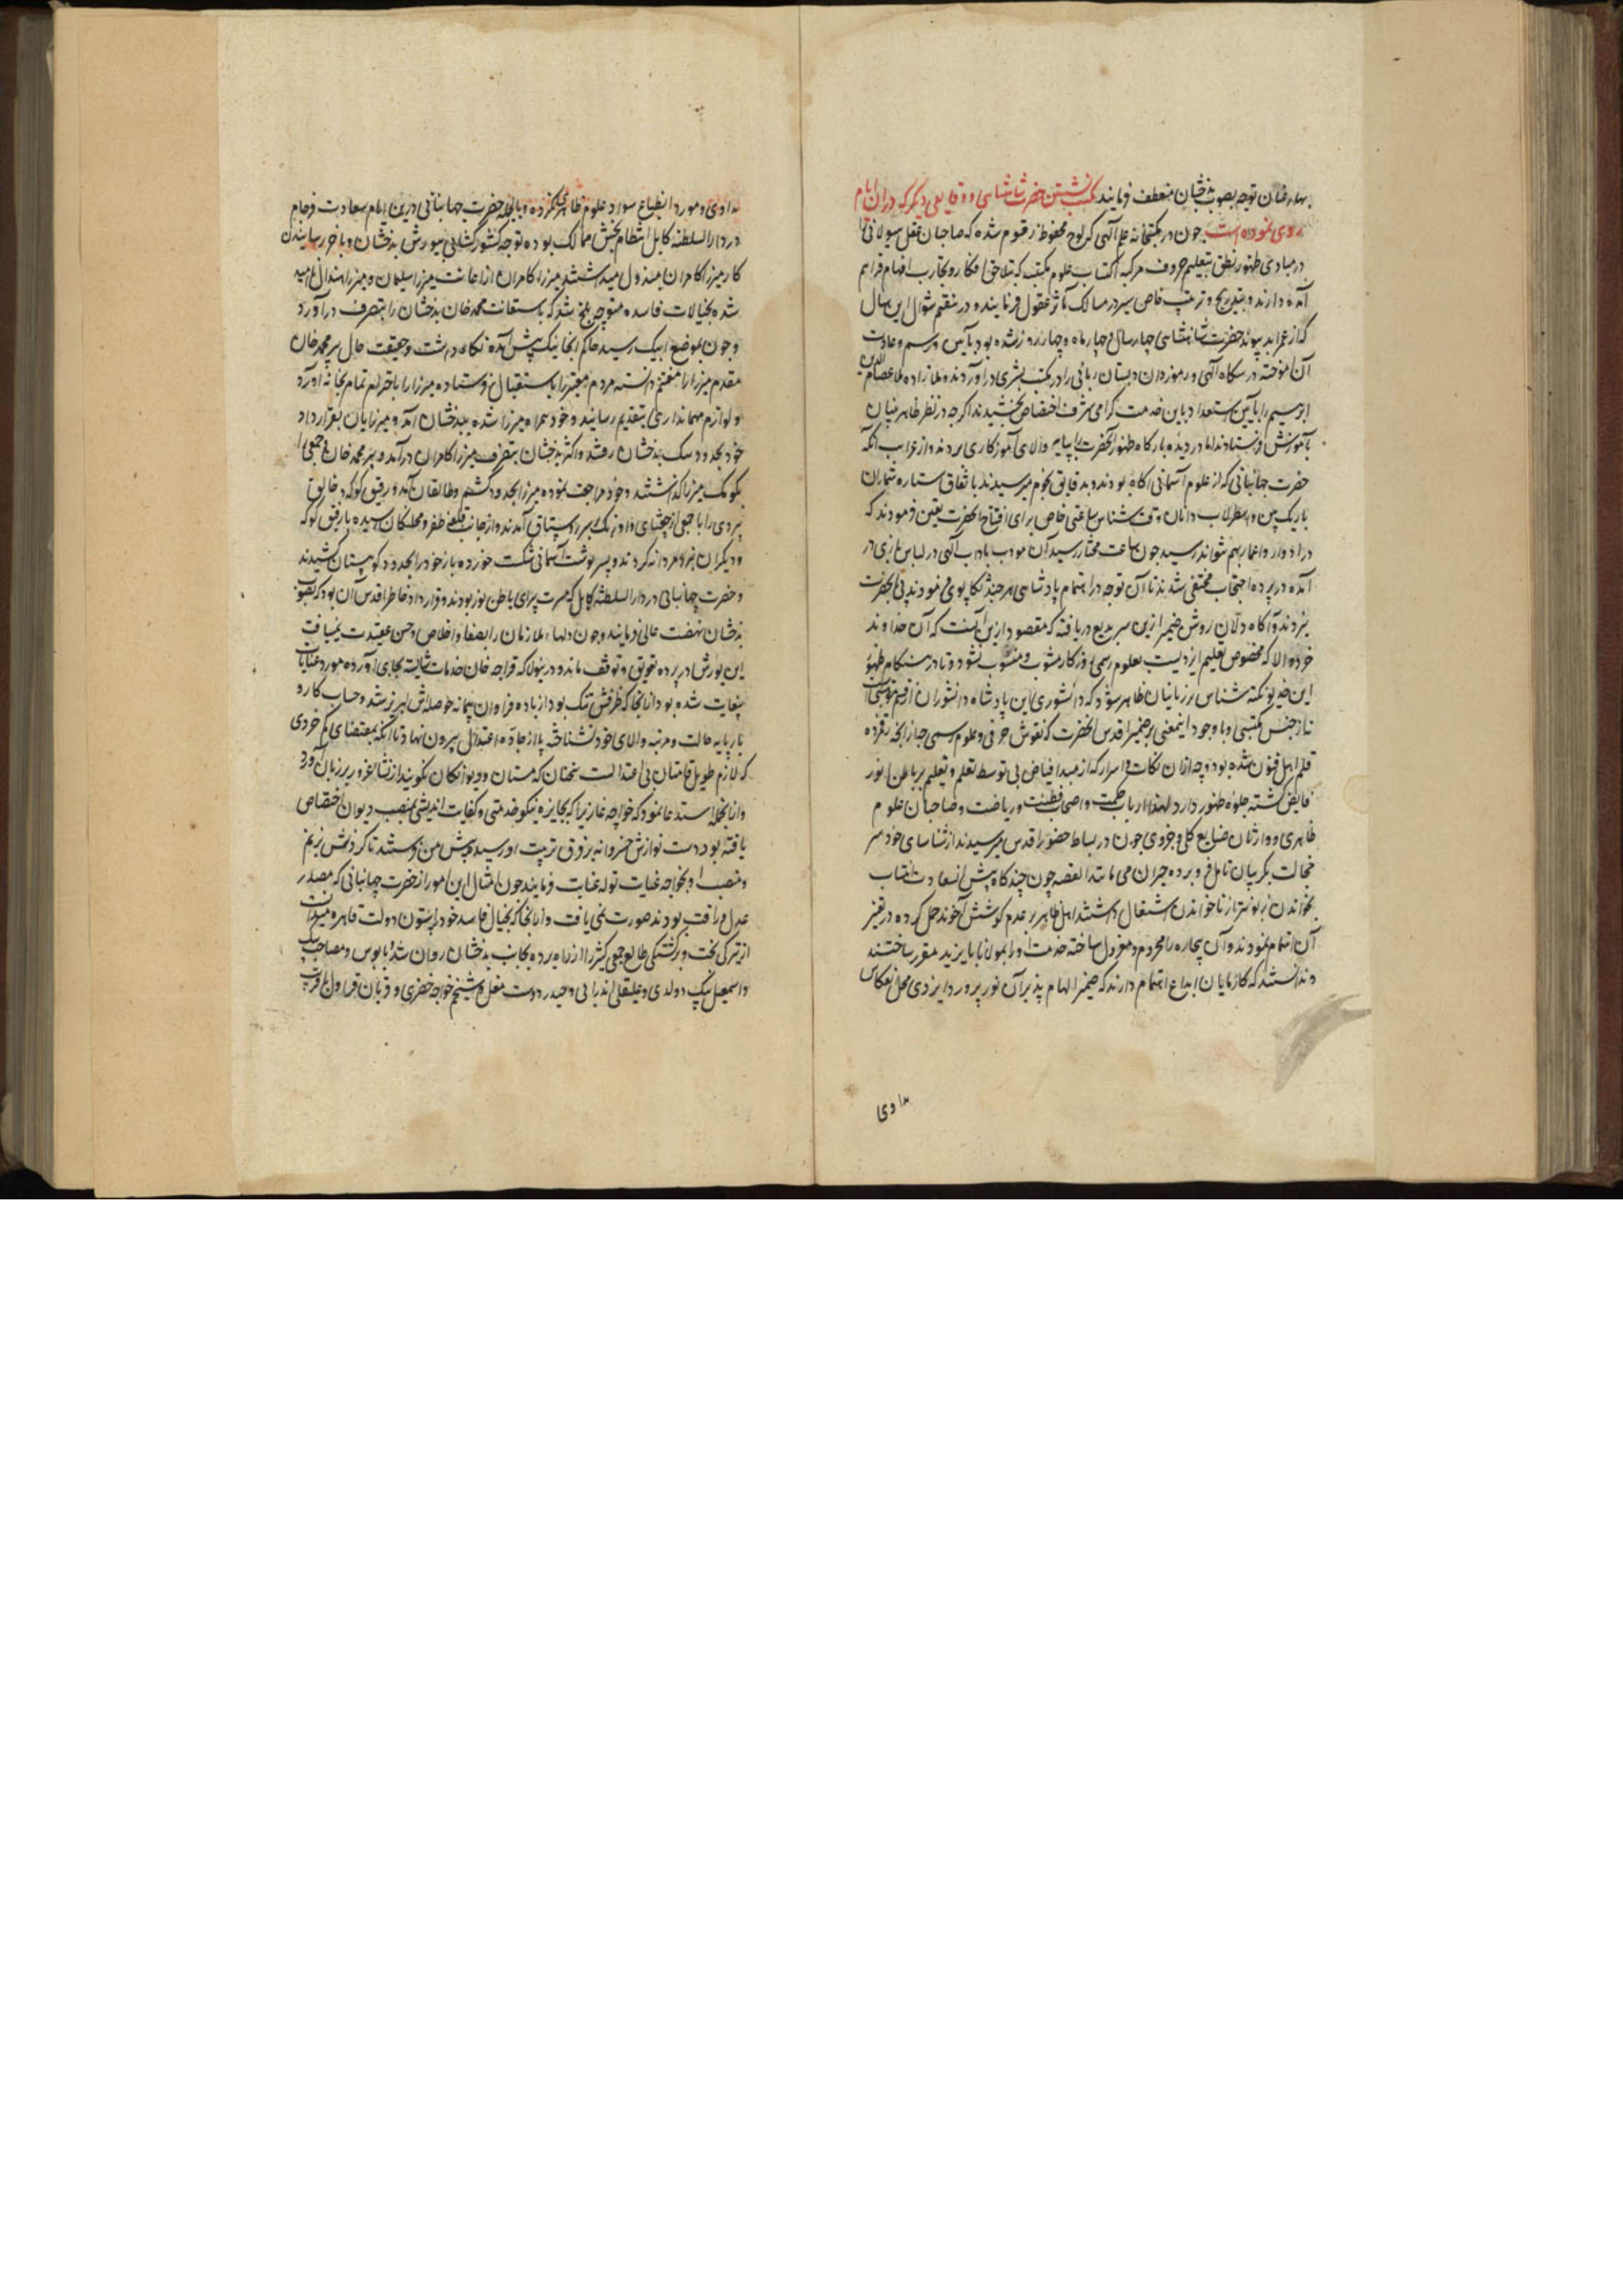 بهار خان توجه بصوب بدخشان منعطف فرمایند بمکتب نشستن حضرت شاهنشاهی و وقایعی دیگر که دران ایام
روی نموده است چون در مکتبخانه علم الهی که لوح محفوظ رقوم شده که صاحبان عقل هیولانی را
در مبادی ظهور نطق بتعلیم حروف مرکبه اکتساب علوم مکتب که بتلاحق افکار و تجارب افهام فراهم
آمده دارند و بتدریج و ترتیب خاص سیر در مسالک مآثر عقول فرمایند و در هفتم شوال این سال
که از عمر ابد پیوند حضرت شاهنشاهی چهار سال و چهار ماه و چهار روز شده بود بآیین و رسم و عادت
آن آموخته درسگاه الهی و رموزدان دبستان ربانی را در مکتب بشری در آوردند و ملازاده ملا عصام الدین
ابرهیم را باین استعداد باین خدمت گرامی شرف اختصاص بخشیدند اگرچه در نظر ظاهر بینان
بآموزش فرستادند اما در دیده بارگاه ظهور آنحضرت را بپایه والای آموزگاری بردند و از غرایب آنکه
حضرت جهانبانی که از علوم آسمانی آگاه بودند و بدقایق نجوم میرسیدند باتفاق ستاره شماران
باریک بین و اسطرلاب دانان وقت شناس ساعتی خاص برای افتتاح آنحضرت تعین فرمودند که
در ادوار و اعمار بهم نتواند رسید چون ساعت مختار رسید آن مودب بادب الهی در لباس بازی در
آمده در پرده احتجاب مختفی شدند تا آن توجه در اهتمام پادشاهی هرچند تکاپوی نمودند پی بآنحضرت
نبردند و آگاه دلان روشن ضمیر ازین سر بدیع دریافته که مقصود ازین آنست که آن خداوند
خرد والا که مخصوص تعلیم ایزدیست بعلوم رسمی روزگار مشوب و منسوب نشود و تا در هنگام ظهور
این خدیو نکته شناس بر زمانیان ظاهر شود که دانشوری این پادشاه دانشوران از قسم موهبتی است
نه از جنس مکتبی و با وجود اینمعنی بر ضمیر اقدس آنحضرت که نقوش حرفی و علوم رسمی چه از آنچه زده
قلم اهل فنون شده بود و چه ازان نکات و اسرار که از مبدا فیاض بی توسط تعلم و تعلیم بر باطن انور
فایض گشته جلوه ظهور دارد لهذا ارباب حکمت و اصحاب فطنت و ریاضت و صاحبان علوم
ظاهری و وارثان صنایع کلی و جزوی چون در بساط حضور اقدس میرسیدند از شناسای خود سر
خجالت بگریبان تامل فرو برده حیران می مانند القصه چون چندگاه پیش آن سعادت انتساب
بخواندن ازبر بنوشتن از ناخواندن اشتغال داشتند اهل ظاهر بر عدم کوشش آخوند حمل کرده در تغیر
آن اهتمام نمودند و آن بیچاره را محروم و معزول ساخته خدمت او را بمولانا بایزید مقرر ساختند
و ندانستند که کارنمایان ابداع اهتمام دارند که ضمیر الهام پذیر آن نورپرورد ایزدی محل انعکاس
مدادی
مدادی و مورد انطباع سواد علوم ظاهری نگردد و بالجمله حضرت جهانبانی درین ایام سعادت فرجام
در دارالسلطنه کابل انتظام بخش ممالک بوده توجه کشورگشایی بیورش بدخشان و بآخر رسانیدن
کار میرزا کامران مبذول میداشتند میرزا کامران از اعانت میرزا سلیمان و میرزا هندال ناامید
شده بخیالات فاسده متوجه بلخ شد که باستعانت محمد خان بدخشان را بتصرف درآورد
و چون بموضع ایبک رسید حاکم آنجا نیک پیش آمده نگاه داشت و حقیقت حال بپیر محمد خان
مقدم میرزا را مغتنم دانسته مردم معتبر را باستقبال فرستاده میرزا را باحترام تمام بخانه آورد
و لوازم مهمانداری بتقدیم رسانید و خود همراه میرزا شده ببدخشان آمد و میرزایان بقرارداد
خود بحدود سنگ بدخشان رفتند و اکثر بدخشان بتصرف میرزا کامران درآمد و پیر محمد خان جمعی را
بکومک میرزا گذاشتند و خود مراجعت نموده میرزا بحدود کشم و طالقان آمد و رفیق کوکه و خالق
بردی را با جمعی از چغتای و اوزبک بسر رستاق آمدند و از جانب قلعه ظفر و محلکان رسیده با رفیق کوکه
و دیگران نبرد مردانه کردند و بسرنوشت آسمانی شکست خورده باز خود را بحدود کوهستان کشیدند
و حضرت جهانبانی در دارالسلطنه کابل که مسرت پرای باطن نوز بودند و قرارداد خاطر اقدس آن بود که بصوب
بدخشان نهضت عالی فرمایند و چون دلهاء ملازمان را بصفا و اخلاص و حسن عقیدت نمییافت
این یورش در پرده تعویق و توقف ماند و درینولا که قراجه خان خدمات شایسته بجای آورده مورد عنایات
بنهایت شده بود از آنجا که ظرفش تنک بود از باده فراوان پیمانه حوصله اش لبریز شد و حساب کار و
بار پایه حالت و مرتبه والای خود نشناخته پا از جاده اعتدال بیرون نهاد تا آنکه بمقتضای کم خردی
که لازم طویل قامتان بی اعتدالست سخنان که مستان و دیوانگان نگویند از نشا غرور بر زبان آورد
و ازانجمله استدعا نمود که خواجه غازی را که بجایزه نیکو خدمتی و کفایت اندیشی بمنصب دیوان اختصاص
یافته بود دست نوازش خسروانه بر فرق تربیت او رسیده پیش من فرستند تا گردنش بزنم
و منصب او بخواجه غیاث توله عنایت فرمایند چون امثال این امور از حضرت جهانبانی که مصدر
عدل و رافت بودند صورت نمی یافت و ازانجا که بخیال فاسد خود را ستون دولت قاهره میدانست
از تیرگی بخت و برگشتگی طالع جمعی کثیر را از راه برده بجانب بدخشان روان شد و بابوس و مصاحب بیگ
و اسمعیل بیگ دولدی و علیقلی اندرابی و حیدر دوست مغل و شیخم خواجه خضری و قربان قراول با قریب